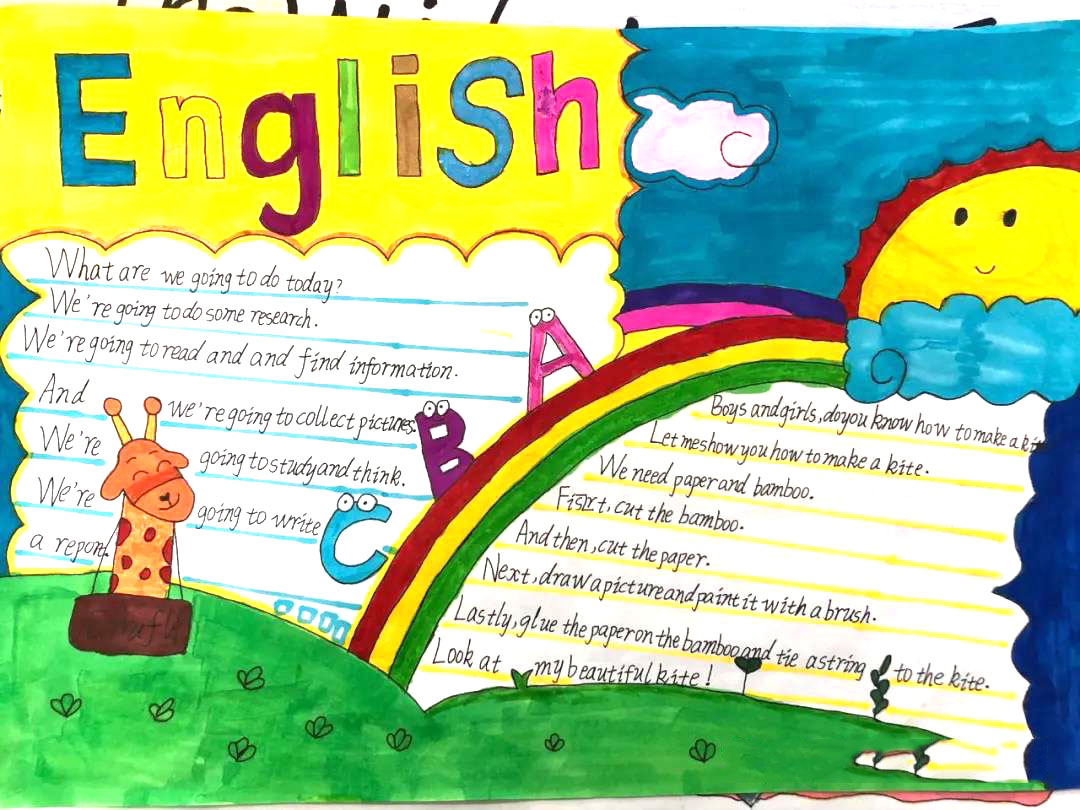 English
What are we going to do today?
We're going to do some research.
We're going to read and and find information.
And we're going to collect pictures.
We're going to study and think.
We're going to write
a report.
A
B
C
Boys and girls, do you know how to make a kit
Let me show you how to make a kite.
We need paper and bamboo.
Fisrt, cut the bamboo.
And then, cut the paper.
Next, draw a picture and paint it with a brush.
Lastly, glue the paper on the bamboo and tie a string to the kite.
Look at my beautiful kite!